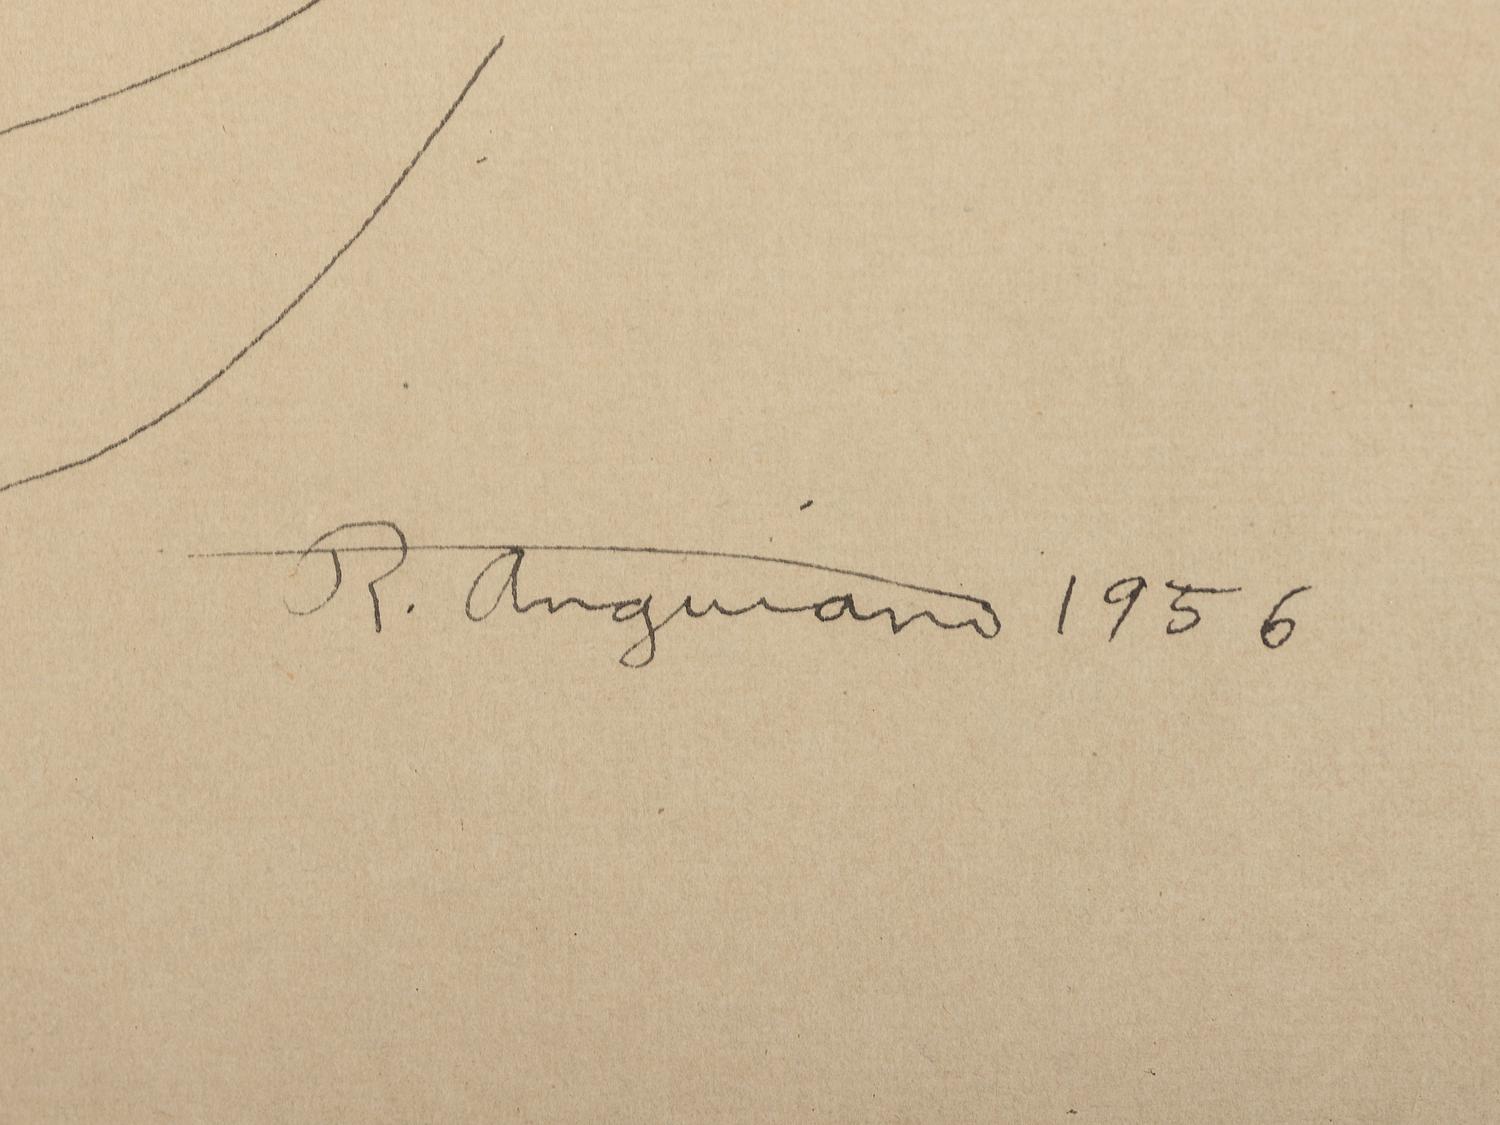 R. Anguiano 1956